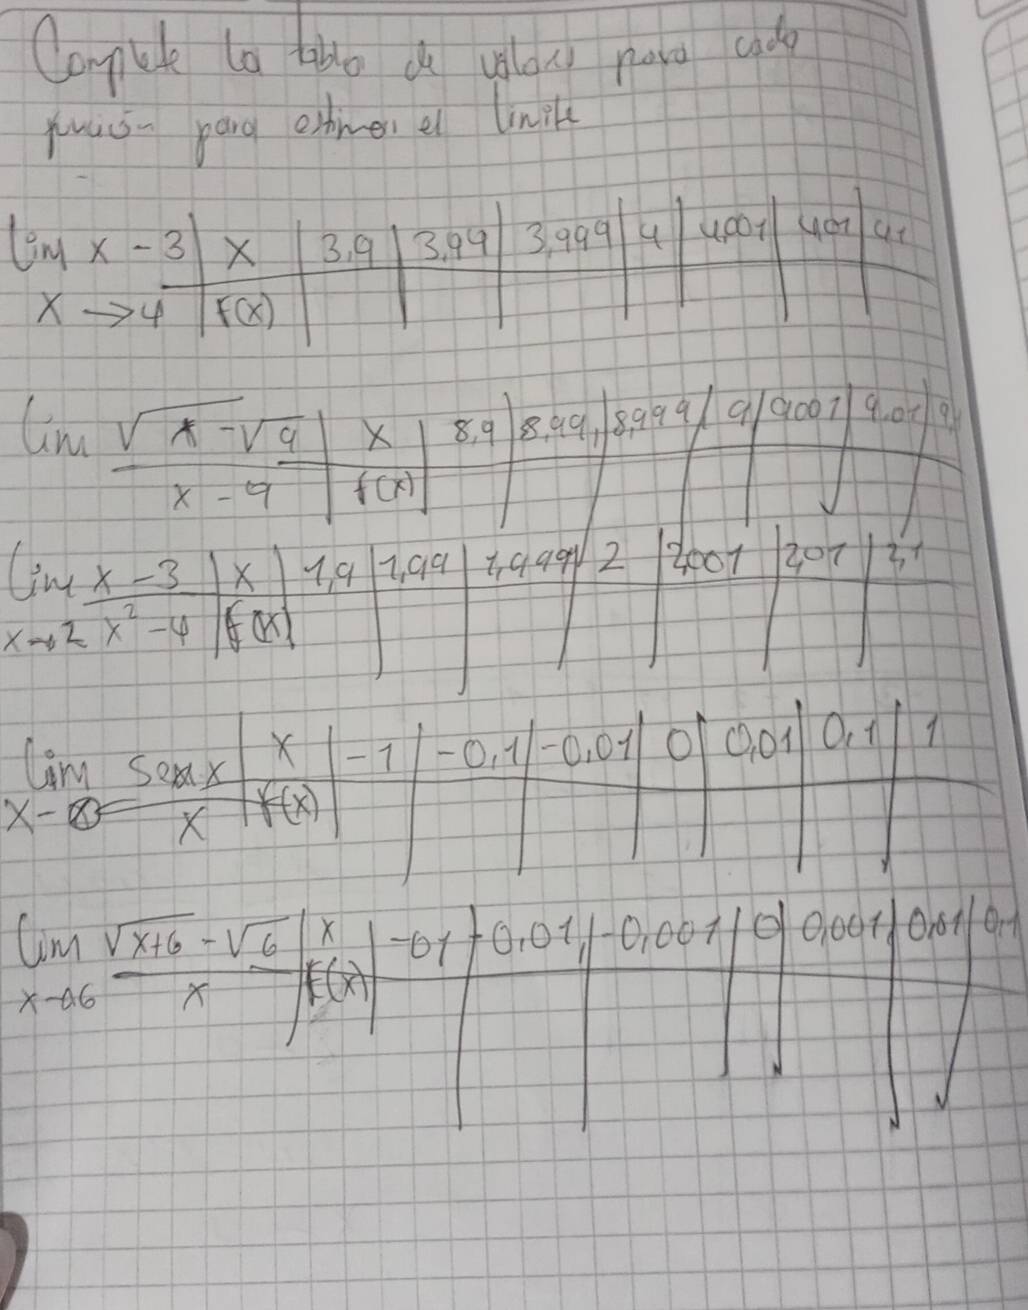 Complete la tabla de valores para cada
función para estimar el limite
lim x - 3 | x | 3,9 | 3,99 | 3,999 | 4 | 4,001 | 4,01 | 4,1
x → 4 | f(x)
lim √x - √9 | x | 8,9 | 8,99 | 8,999 | 9 | 9,001 | 9,01 | 9,1
x - 9 | f(x)
lim x - 3 | x | 1,9 | 1,99 | 1,999 | 2 | 2,001 | 2,01 | 2,1
x→2 x² - 4 | f(x)
lim sen x | x | -1 | -0,1 | -0,01 | 0 | 0,01 | 0,1 | 1
x - x | f(x)
lim √x+6 - √6 | x | -01 | -0,01 | -0,001 | 0 | 0,001 | 0,01 | 0,1
x→6 x | f(x)